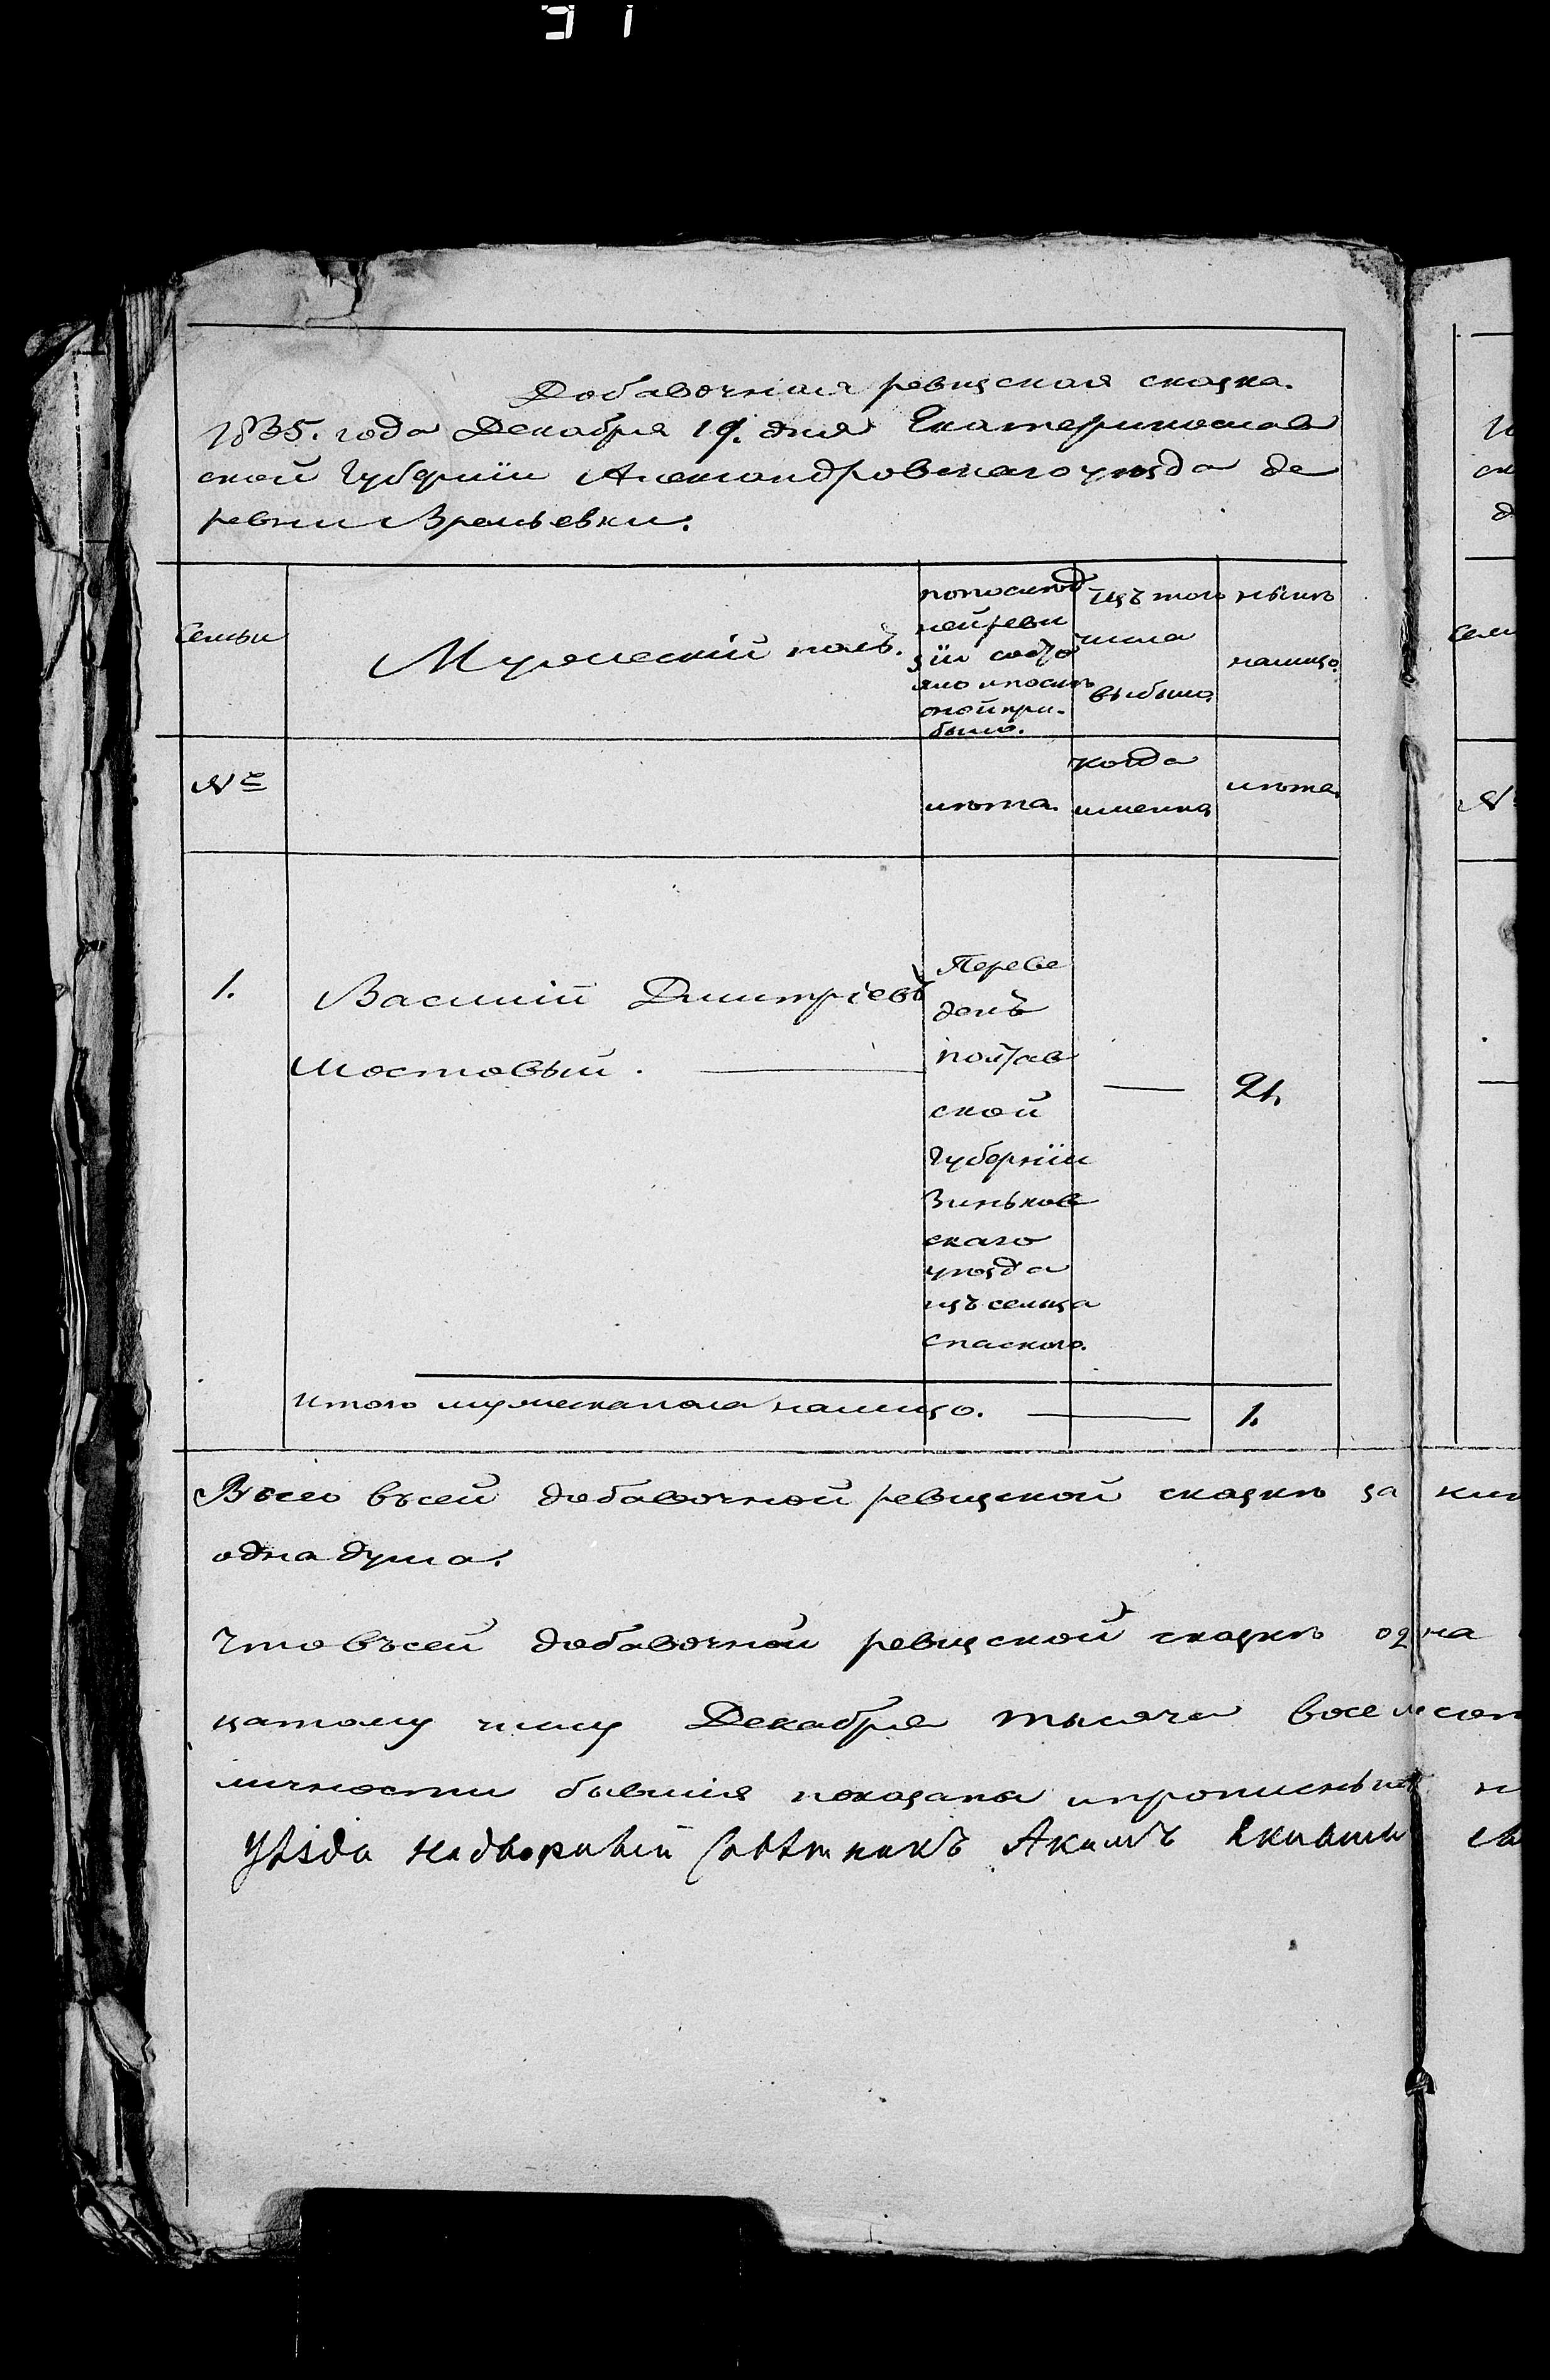 Добавочная ревизская сказка.
1835. года Декабря 19. дня Екатеринослав
ской Губернiи Александровскаго уѣзда де
ревни Времьевки.
Семьи
Мужескiй полъ.
по послѣд
ней реви
зiи состо
яло и послѣ
оной при-
было.
Изъ того
числа
выбыло
нынѣ
налицо.
№
лѣта.
когда
именно
лѣта.
1.
Василiй Дмитрiевъ
Мостовый.
Переве
денъ
полтав
ской
Губернiи
Зиньков
скаго
уѣзда
изъ сельца
Спаского.
21.
Итого мужеска пола налицо.
1.
Всего въсей добавочной ревизской сказкѣ за
одна душа.
Что въсей добавочной ревизской сказкѣ одна
цатому числу Декабря тысяча восемсот
личности бывшiя показана ипрописныхъ н
Уѣзда Надворный Совѣтникъ Акимъ